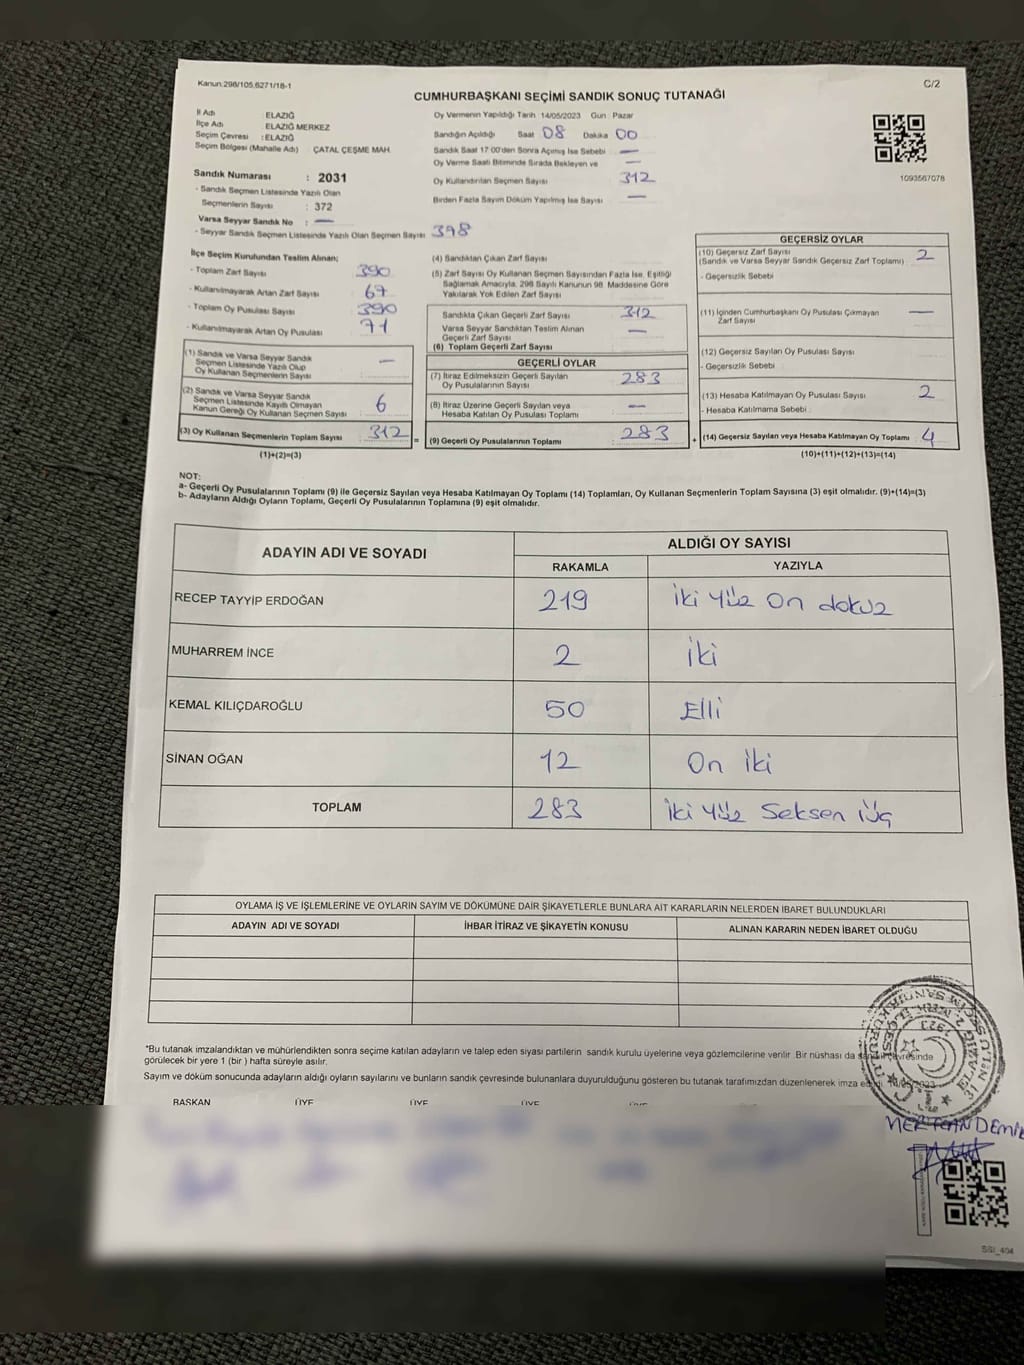 Kanun:298/105,6271/18-1
C/2
CUMHURBAŞKANI SEÇİMİ SANDIK SONUÇ TUTANAĞI
İl Adı : ELAZIĞ
İlçe Adı : ELAZIĞ MERKEZ
Seçim Çevresi : ELAZIĞ
Seçim Bölgesi (Mahalle Adı) ÇATAL ÇEŞME MAH.
Sandık Numarası : 2031
- Sandık Seçmen Listesinde Yazılı Olan
Seçmenlerin Sayısı : 372
Varsa Seyyar Sandık No : —
- Seyyar Sandık Seçmen Listesinde Yazılı Olan Seçmen Sayısı 398
Oy Vermenin Yapıldığı Tarih 14/05/2023 Gün Pazar
Sandığın Açıldığı Saat 08 Dakika 00
Sandık Saat 17.00'den Sonra Açılmış İse Sebebi —
Oy Verme Saati Bitiminde Sırada Bekleyen ve —
Oy Kullandırılan Seçmen Sayısı 312
Birden Fazla Sayım Döküm Yapılmış İse Sayısı —
1093567078
İlçe Seçim Kurulundan Teslim Alınan;
- Toplam Zarf Sayısı 390
- Kullanılmayarak Artan Zarf Sayısı 67
- Toplam Oy Pusulası Sayısı 390
- Kullanılmayarak Artan Oy Pusulası 71
(1) Sandık ve Varsa Seyyar Sandık
Seçmen Listesinde Yazılı Olup
Oy Kullanan Seçmenlerin Sayısı —
(2) Sandık ve Varsa Seyyar Sandık
Seçmen Listesinde Kayıtlı Olmayan
Kanun Gereği Oy Kullanan Seçmen Sayısı 6
(3) Oy Kullanan Seçmenlerin Toplam Sayısı 312 =
(1)+(2)=(3)
(4) Sandıktan Çıkan Zarf Sayısı
(5) Zarf Sayısı Oy Kullanan Seçmen Sayısından Fazla İse, Eşitliği
Sağlamak Amacıyla, 298 Sayılı Kanunun 98. Maddesine Göre
Yakılarak Yok Edilen Zarf Sayısı
Sandıkta Çıkan Geçerli Zarf Sayısı 312
Varsa Seyyar Sandıktan Teslim Alınan
Geçerli Zarf Sayısı —
(6) Toplam Geçerli Zarf Sayısı
GEÇERLİ OYLAR
(7) İtiraz Edilmeksizin Geçerli Sayılan
Oy Pusulalarının Sayısı 283
(8) İtiraz Üzerine Geçerli Sayılan veya
Hesaba Katılan Oy Pusulası Toplamı —
(9) Geçerli Oy Pusulalarının Toplamı 283 +
GEÇERSİZ OYLAR
(10) Geçersiz Zarf Sayısı 2
(Sandık ve Varsa Seyyar Sandık Geçersiz Zarf Toplamı)
- Geçersizlik Sebebi
(11) İçinden Cumhurbaşkanı Oy Pusulası Çıkmayan —
Zarf Sayısı
(12) Geçersiz Sayılan Oy Pusulası Sayısı
- Geçersizlik Sebebi
(13) Hesaba Katılmayan Oy Pusulası Sayısı 2
- Hesaba Katılmama Sebebi
(14) Geçersiz Sayılan veya Hesaba Katılmayan Oy Toplamı 4
(10)+(11)+(12)+(13)=(14)
NOT:
a- Geçerli Oy Pusulalarının Toplamı (9) ile Geçersiz Sayılan veya Hesaba Katılmayan Oy Toplamı (14) Toplamları, Oy Kullanan Seçmenlerin Toplam Sayısına (3) eşit olmalıdır. (9)+(14)=(3)
b- Adayların Aldığı Oyların Toplamı, Geçerli Oy Pusulalarının Toplamına (9) eşit olmalıdır.
ADAYIN ADI VE SOYADI ALDIĞI OY SAYISI
RAKAMLA YAZIYLA
RECEP TAYYİP ERDOĞAN 219 İki Yüz On dokuz
MUHARREM İNCE 2 İki
KEMAL KILIÇDAROĞLU 50 Elli
SİNAN OĞAN 12 On İki
TOPLAM 283 İki Yüz Seksen Üç
OYLAMA İŞ VE İŞLEMLERİNE VE OYLARIN SAYIM VE DÖKÜMÜNE DAİR ŞİKAYETLERLE BUNLARA AİT KARARLARIN NELERDEN İBARET BULUNDUKLARI
ADAYIN ADI VE SOYADI İHBAR İTİRAZ VE ŞİKAYETİN KONUSU ALINAN KARARIN NEDEN İBARET OLDUĞU
*Bu tutanak imzalandıktan ve mühürlendikten sonra seçime katılan adayların ve talep eden siyasi partilerin sandık kurulu üyelerine veya gözlemcilerine verilir. Bir nüshası da sandık çevresinde
görülecek bir yere 1 (bir) hafta süreyle asılır.
Sayım ve döküm sonucunda adayların aldığı oyların sayılarını ve bunların sandık çevresinde bulunanlara duyurulduğunu gösteren bu tutanak tarafımızdan düzenlenerek imza edildi.
BAŞKAN ÜYE ÜYE ÜYE
SSI_404